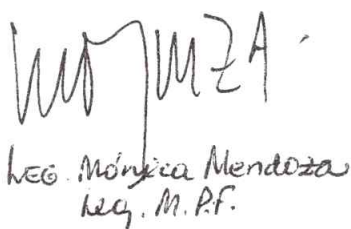 LEG. Mónica Mendoza
Leg. M.P.F.